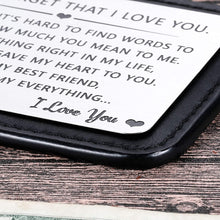 RGET THAT I LOVE YOU.
'S HARD TO FIND WORDS TO
W MUCH YOU MEAN TO ME.
THING RIGHT IN MY LIFE,
GAVE MY HEART TO YOU.
MY BEST FRIEND,
MY EVERYTHING...
I Love You